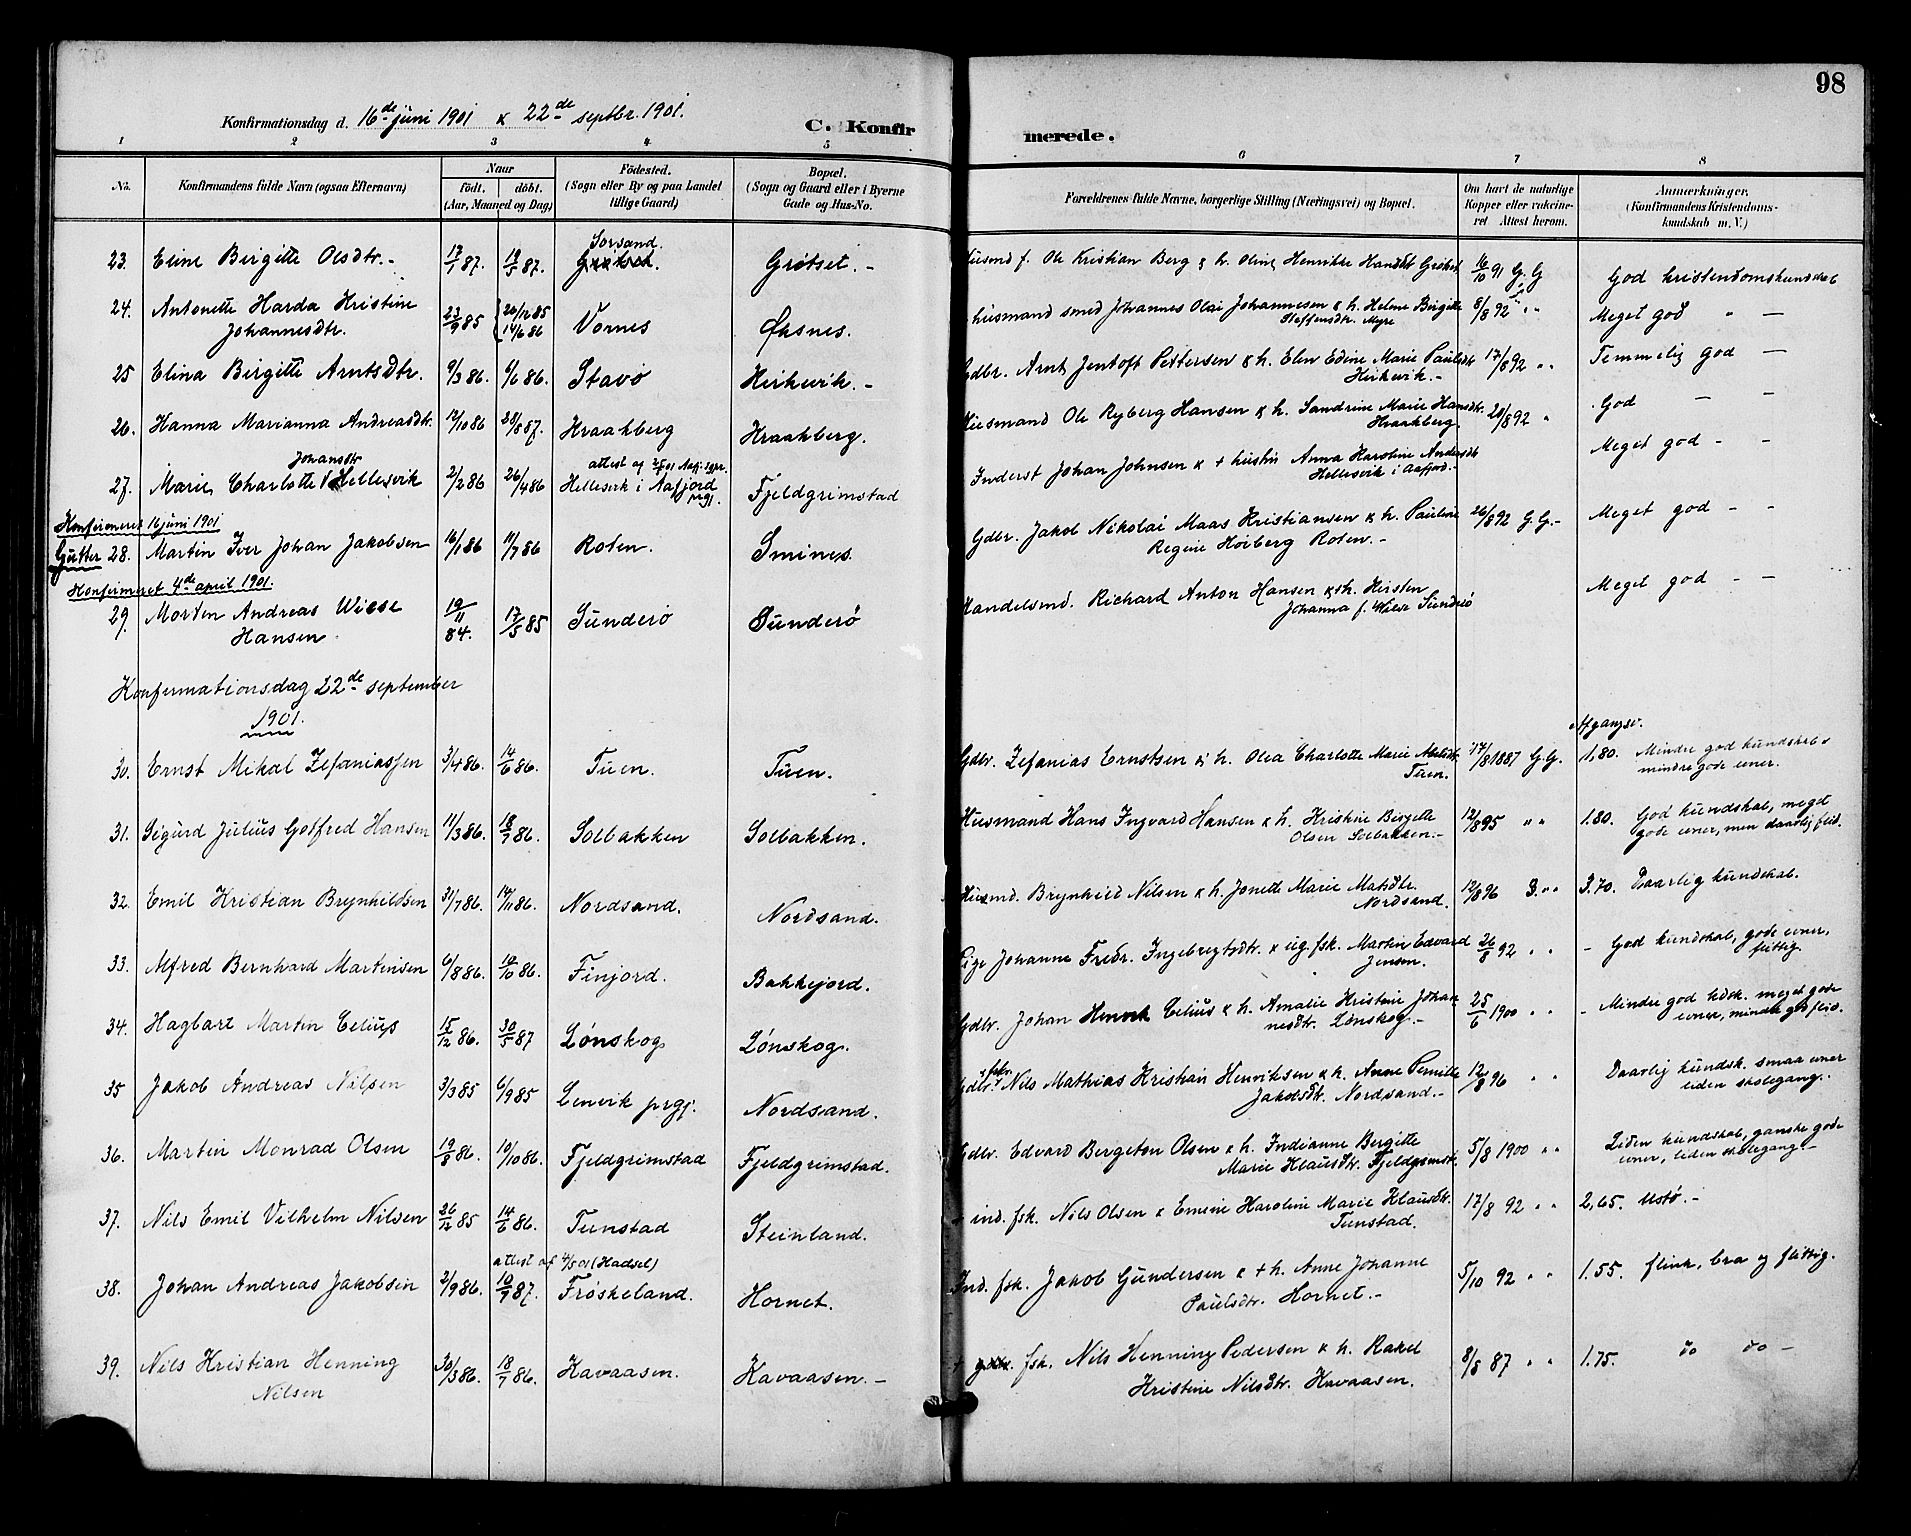 98
Konfirmationsdag d. 16de juni 1901 & 22de septbr. 1901.
C. Konfirmerede.
1 2 3 4 5 6 7 8
No. Konfirmandens fulde Navn (ogsaa Efternavn) Naar födt. döbt. (Aar, Maaned og Dag) Födested. (Sogn eller By og paa Landet tillige Gaard) Bopæl. (Sogn og Gaard eller i Byerne Gade og Hus-No. Forældrenes fulde Navne, borgerlige Stilling (Næringsvei) og Bopæl. Om havt de naturlige Kopper eller vakcineret Attest herom. Anmærkninger, (Konfirmandens Kristendomskundskab m. V.)
23. Eline Birgitte Olsdtr. 17/1 87. 19/5 87. Sorsand. Grötset. Husmd f. Ole Kristian Berg & h. Oline Henrikke Hansdtr Grötset 16/10 91 G. G God kristendomskundskab
24. Antonette Harda Kristine 23/9 85 {26/12 85 Vornes Öksnes. husmand smed Johannes Olai Johannesen & h. Helene Birgitte 8/8 92 " " Meget god " —
Johannesdtr. 14/6 86 Steffensdtr. Myre
25 Elina Birgitte Arntsdtr. 9/3 86. 6/6 86. Stavö Kirkevik. - Gdbr. Arnt Jentoft Pettersen & h. Elen Edine Marie Paulsdtr 17/8 92 " " Temmelig god —
Kirkevik. -
26. Hanna Marianna Andreasdtr. 12/10 86 28/8 87. Kraakberg Kraakberg. Husmand Ole Ryberg Hansen & h. Sandrine Marie Hansdtr. 20/8 92 " God — —
Kraakberg.
Johansdtr attest af 2/5 01 Aafj. sgpr.
27. Marie Charlotte Hellesvik 2/2 86 26/4 86 Hellesvik i Aafjord prgj. Fjeldgrimstad Inderst Johan Johnsen & + hustru Anna Karoline Andersdtr Meget god - -
Hellesvik i Aafjord. -
Konfirmeret 16 juni 1901
Gutter 28. Martin Iver Johan Jakobsen 16/1 86 11/7 86 Roten. Smines. Gdbr. Jakob Nikolai Maas Kristiansen & h. Pauline 26/8 92 G. G. - Meget god - -
Regine Höiberg Roten. -
Konfirmeret 4de april 1901.
29. Morten Andreas Wiese 19/11 84. 17/5 85 Sunderö Sunderö Handelsmd. Richard Anton Hansen & h. Kirsten Meget god - -
Hansen Johanna f. Wiese Sunderö
Konfirmationsdag 22de september
1901.
Afgangsv.
30. Ernst Mikal Zefaniassen 3/4 86. 14/6 86. Tuen. Tuen. Gdbr. Zefanias Ernstsen & h. Olea Charlotte Marie Abelsdtr. 17/8 1887 G. G. 1,80. Mindre god kundskab &
Tuen. mindre gode evner.
31. Sigurd Julius Gotfred Hansen 11/3 86. 18/7 86. Solbakken Solbakken. Husmand Hans Ingvard Hansen & h. Kristine Bergitte 12/8 95 " " 1.80. God kundskab, meget
Olsen Solbakken. - gode evner, men daarlig flid.
32. Emil Kristian Brynhildsen 31/7 86. 14/11 86. Nordsand. Nordsand. Husmd. Brynhild Nilsen & h. Jonette Marie Matsdtr. 12/8 96 " " 3.70. Daarlig kundskab.
Nordsand.
33. Alfred Bernhard Martinsen 6/8 86. 10/10 86. Finjord. Bakkejord. Pige Johanne Fredr. Ingebregtsdtr. & ug. fsk. Martin Edvard 26/8 92 " " - God kundskab, gode evner,
Jensen. flittig.
34. Hagbart Martin Celius 15/12 86. 30/5 87 Lönskog Lönskog. Gdbr. Johan Henrik Celius & h. Amalie Kristine Johan 25/6 1900 " " - Mindre god kdsk. meget gode
nesdtr. Lönskog - evner, mindre god flid.
35 Jakob Andreas Nilsen 3/3 85 6/9 85 Lenvik prgj. Nordsand. Gdbr. & fskr. Nils Mathias Kristian Henriksen & h. Anne Pernille 12/8 96 " " Daarlig kundsk. smaa evner
Jakobsdtr. Nordsand. - liden skolegang.
36. Martin Monrad Olsen 19/8 86. 10/10 86. Fjeldgrimstad Fjeldgrimstad. Gdbr. Edvard Bergeton Olsen & h. Indianne Bergitte 5/8 1900 " " Liden kundskab, ganske gode
Marie Klausdtr. Fjeldgrimst. evner, liden skolegang. -
37. Nils Emil Vilhelm Nilsen 26/12 85 14/6 86. Tunstad Steinland. + ind. fsk. Nils Olsen & Emine Karoline Marie Klausdtr. 17/8 92 " " 2,65. Ustö. -
Tunstad.
attest af 4/5 01 (Hadsel)
38. Johan Andreas Jakobsen 2/9 86. 10/7 87. Fröskeland. Hornet. Ind. fsk. Jakob Gundersen & + h. Anne Johanne 5/10 92 " " 1.55. flink, bra og flittig.
Paulsdtr. Hornet. -
39. Nils Kristian Henning 30/3 86. 18/7 86. Kavaasen. Kavaasen. - + fsk. Nils Henning Pedersen & h. Rakel 8/8 87 " " 1.75. do do -
Nilsen Kristine Nilsdtr. Kavaasen.